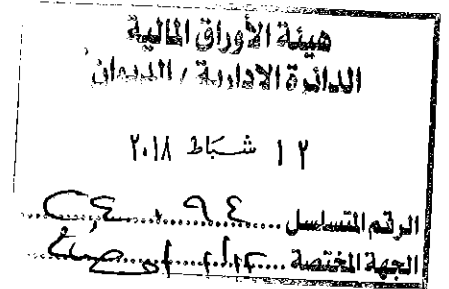 هيئة الأوراق المالية
الدائرة الادارية / الديوان
١٢ شباط ٢٠١٨
الرقم المتسلسل
الجهة المختصة